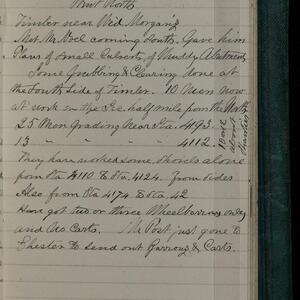 Went North
Timber near Wid Morgan's
Met Mr. Noel coming South. Gave him
Plans of small Culverts, of Muddy Abutment
Some Grubbing & Clearing done at
the South side of Timber. 10 Men now
at work on the Sec. half mile from the North
25 Men Grading Near Sta. 4193.
13 " " " " 4112.
They have worked some, shovels alone
from Sta 4110 to Sta. 4124. From sides
Also from Sta 4174 to Sta. 42
Have got two or three Wheelbarrows only
and no Carts. Mr Post just gone to
Chester to send out Barrows & Carts.